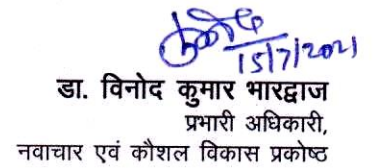 15/7/2021
डा. विनोद कुमार भारद्वाज
प्रभारी अधिकारी,
नवाचार एवं कौशल विकास प्रकोष्ठ